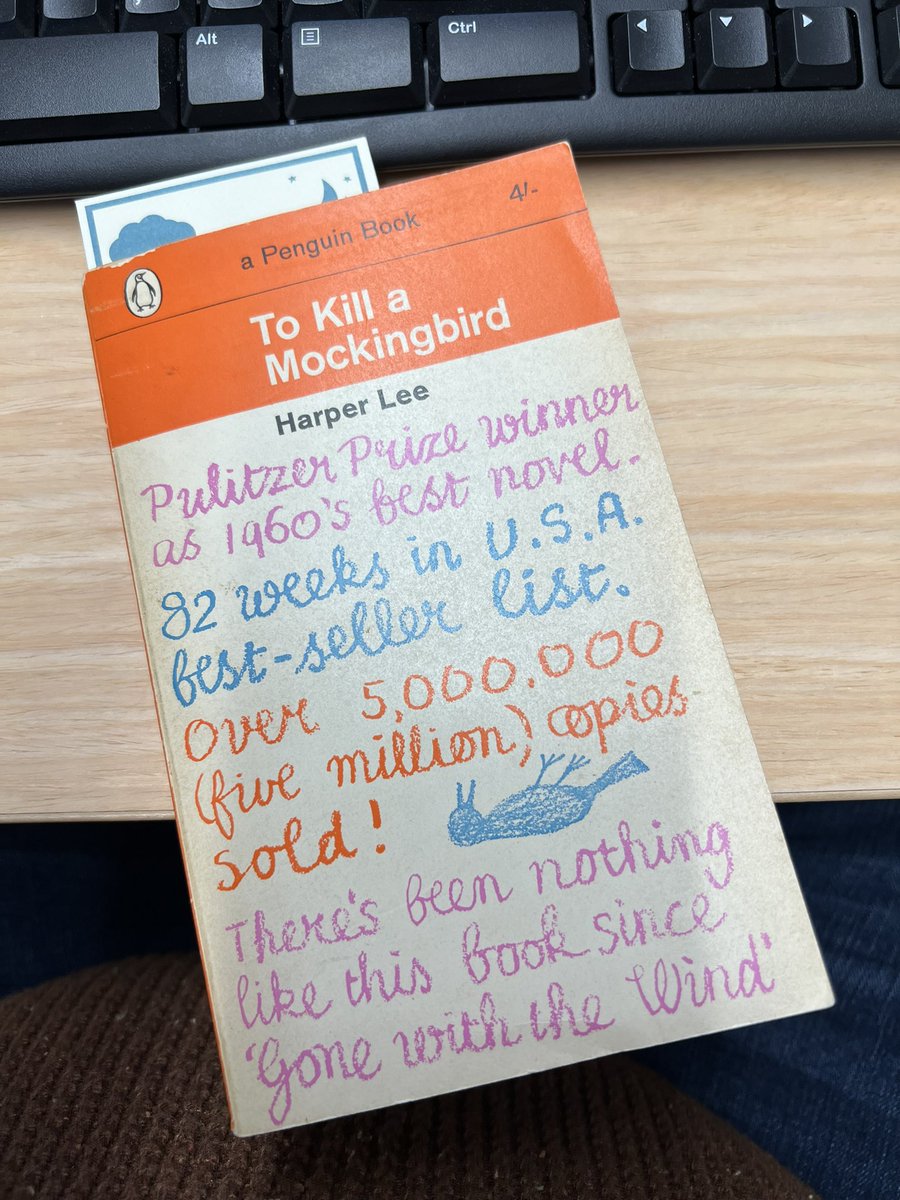 Alt
Ctrl
a Penguin Book
4/-
To Kill a
Mockingbird
Harper Lee
Pulitzer Prize winner
as 1960's best novel.
82 weeks in U.S.A.
best-seller list.
Over 5,000,000
(five million) copies
sold!
There's been nothing
like this book since
'Gone with the Wind'